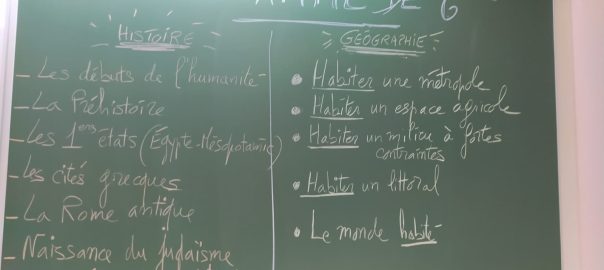 DE 6
HISTOIRE
- Les débuts de l'humanité
- La Préhistoire
- Les 1ers états (Égypte-Mésopotamie)
- Les cités grecques
- La Rome antique
- Naissance du judaïsme
GÉOGRAPHIE
• Habiter une métropole
• Habiter un espace agricole
• Habiter un milieu à fortes
contraintes
• Habiter un littoral
• Le monde habité